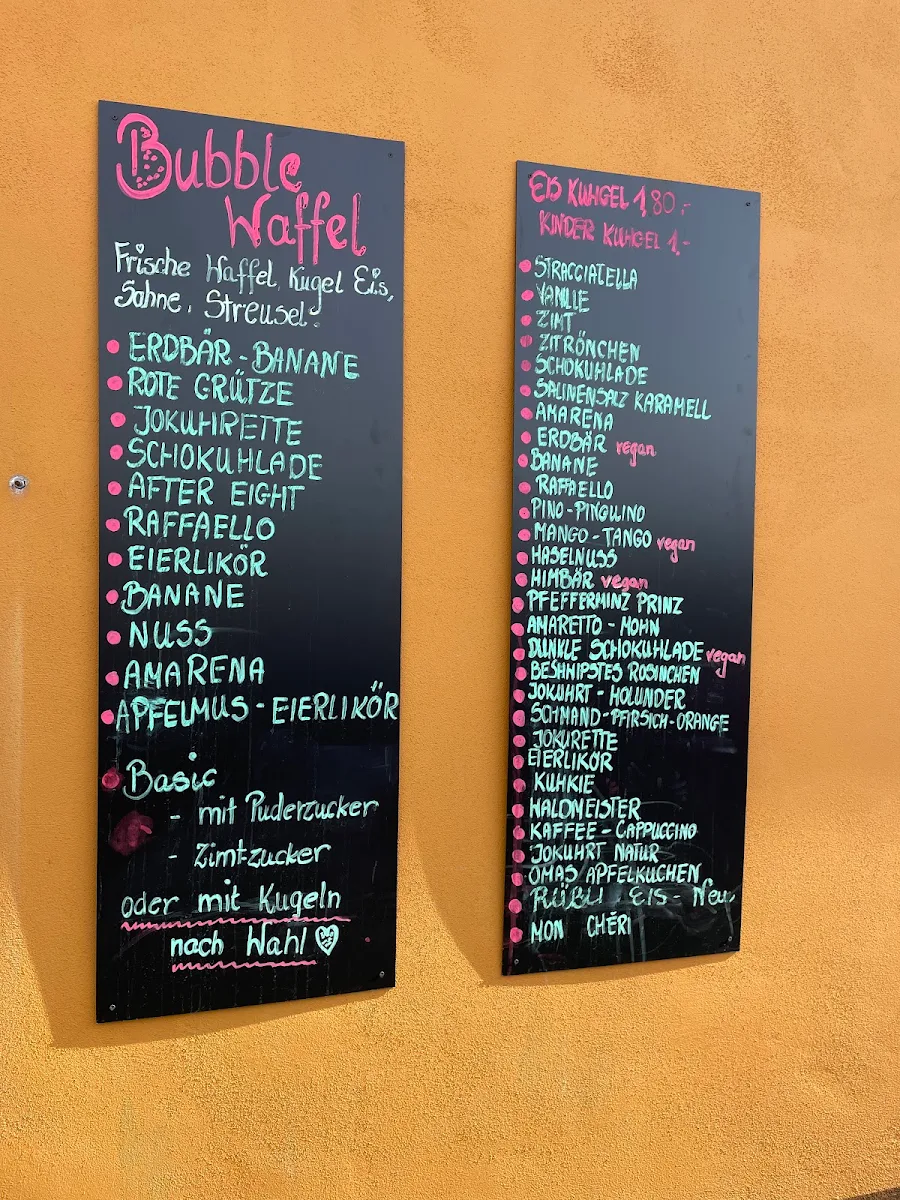 Bubble
Waffel
Frische Waffel, Kugel Eis,
Sahne, Streusel.
ERDBÄR - BANANE
ROTE GRÜTZE
JOKUHRETTE
SCHOKUHLADE
AFTER EIGHT
RAFFAELLO
EIERLIKÖR
BANANE
NUSS
AMARENA
APFELMUS - EIERLIKÖR
Basic
- mit Puderzucker
- Zimtzucker
oder mit Kugeln
nach Wahl
EIS KUHGEL 1,80.-
KINDER KUHGEL 1.-
STRACCIATELLA
VANILLE
ZIMT
ZITRÖNCHEN
SCHOKUHLADE
SALINENSALZ KARAMELL
AMARENA
ERDBÄR vegan
BANANE
RAFFAELLO
PINO-PINGUINO
MANGO-TANGO vegan
HASELNUSS
HIMBÄR vegan
PFEFFERMINZ PRINZ
AMARETTO - MOHN
DUNKLE SCHOKUHLADE vegan
BESHNIPSTES ROSINCHEN
JOKUHRT - HOLUNDER
SCHMAND-PFIRSICH-ORANGE
JOKURETTE
EIERLIKÖR
KUHKIE
HALDMEISTER
KAFFEE - CAPPUCCINO
JOKUHRT NATUR
OMAS APFELKUCHEN
RÜBLI EIS - Neu
MON CHÉRI